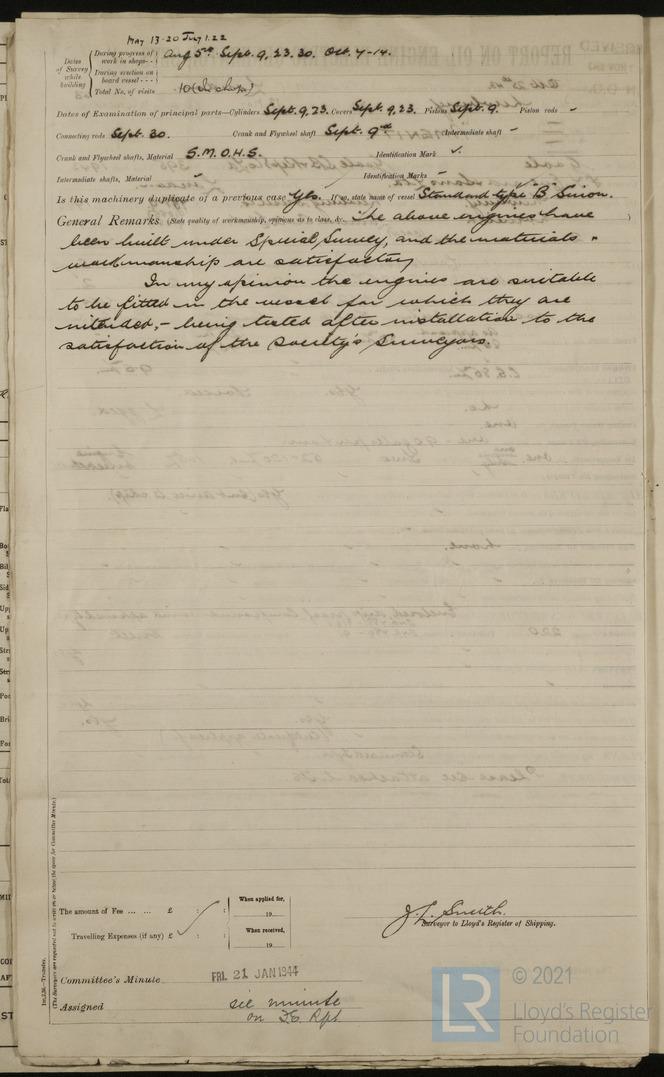 May 13-20 July 1.22
Dates of Survey while building
During progress of work in shops - - Aug 5th Sept. 9, 23. 30. Oct. 7-14.
During erection on board vessel - - -
Total No. of visits 10 (In shop)
Dates of Examination of principal parts—Cylinders Sept. 9, 23. Covers Sept. 9, 23. Pistons Sept. 9. Piston rods -
Connecting rods Sept. 30. Crank and Flywheel shaft Sept. 9th Intermediate shaft -
Crank and Flywheel shafts, Material S.M.O.H.S. Identification Mark ✓.
Intermediate shafts, Material Identification Marks
Is this machinery duplicate of a previous case Yes. If so, state name of vessel Standard type "B"
General Remarks (State quality of workmanship, opinions as to class, &c. The above engines have
been built under Special Survey, and the materials &
workmanship are satisfactory
In my opinion the engines are suitable
to be fitted in the vessel for which they are
intended, - being tested after installation to the
satisfaction of the Society's Surveyors.
The amount of Fee ... ... £ : :
Travelling Expenses (if any) £ : :
When applied for,
19
When received,
19
J. L. Smith.
Surveyor to Lloyd's Register of Shipping.
Committee's Minute FRI. 21 JAN 1944
Assigned see minute
on F.E. Rpt
(The Surveyors are requested not to write on or below the space for Committee Minute.)
LR
© 2021
Lloyd's Register
Foundation